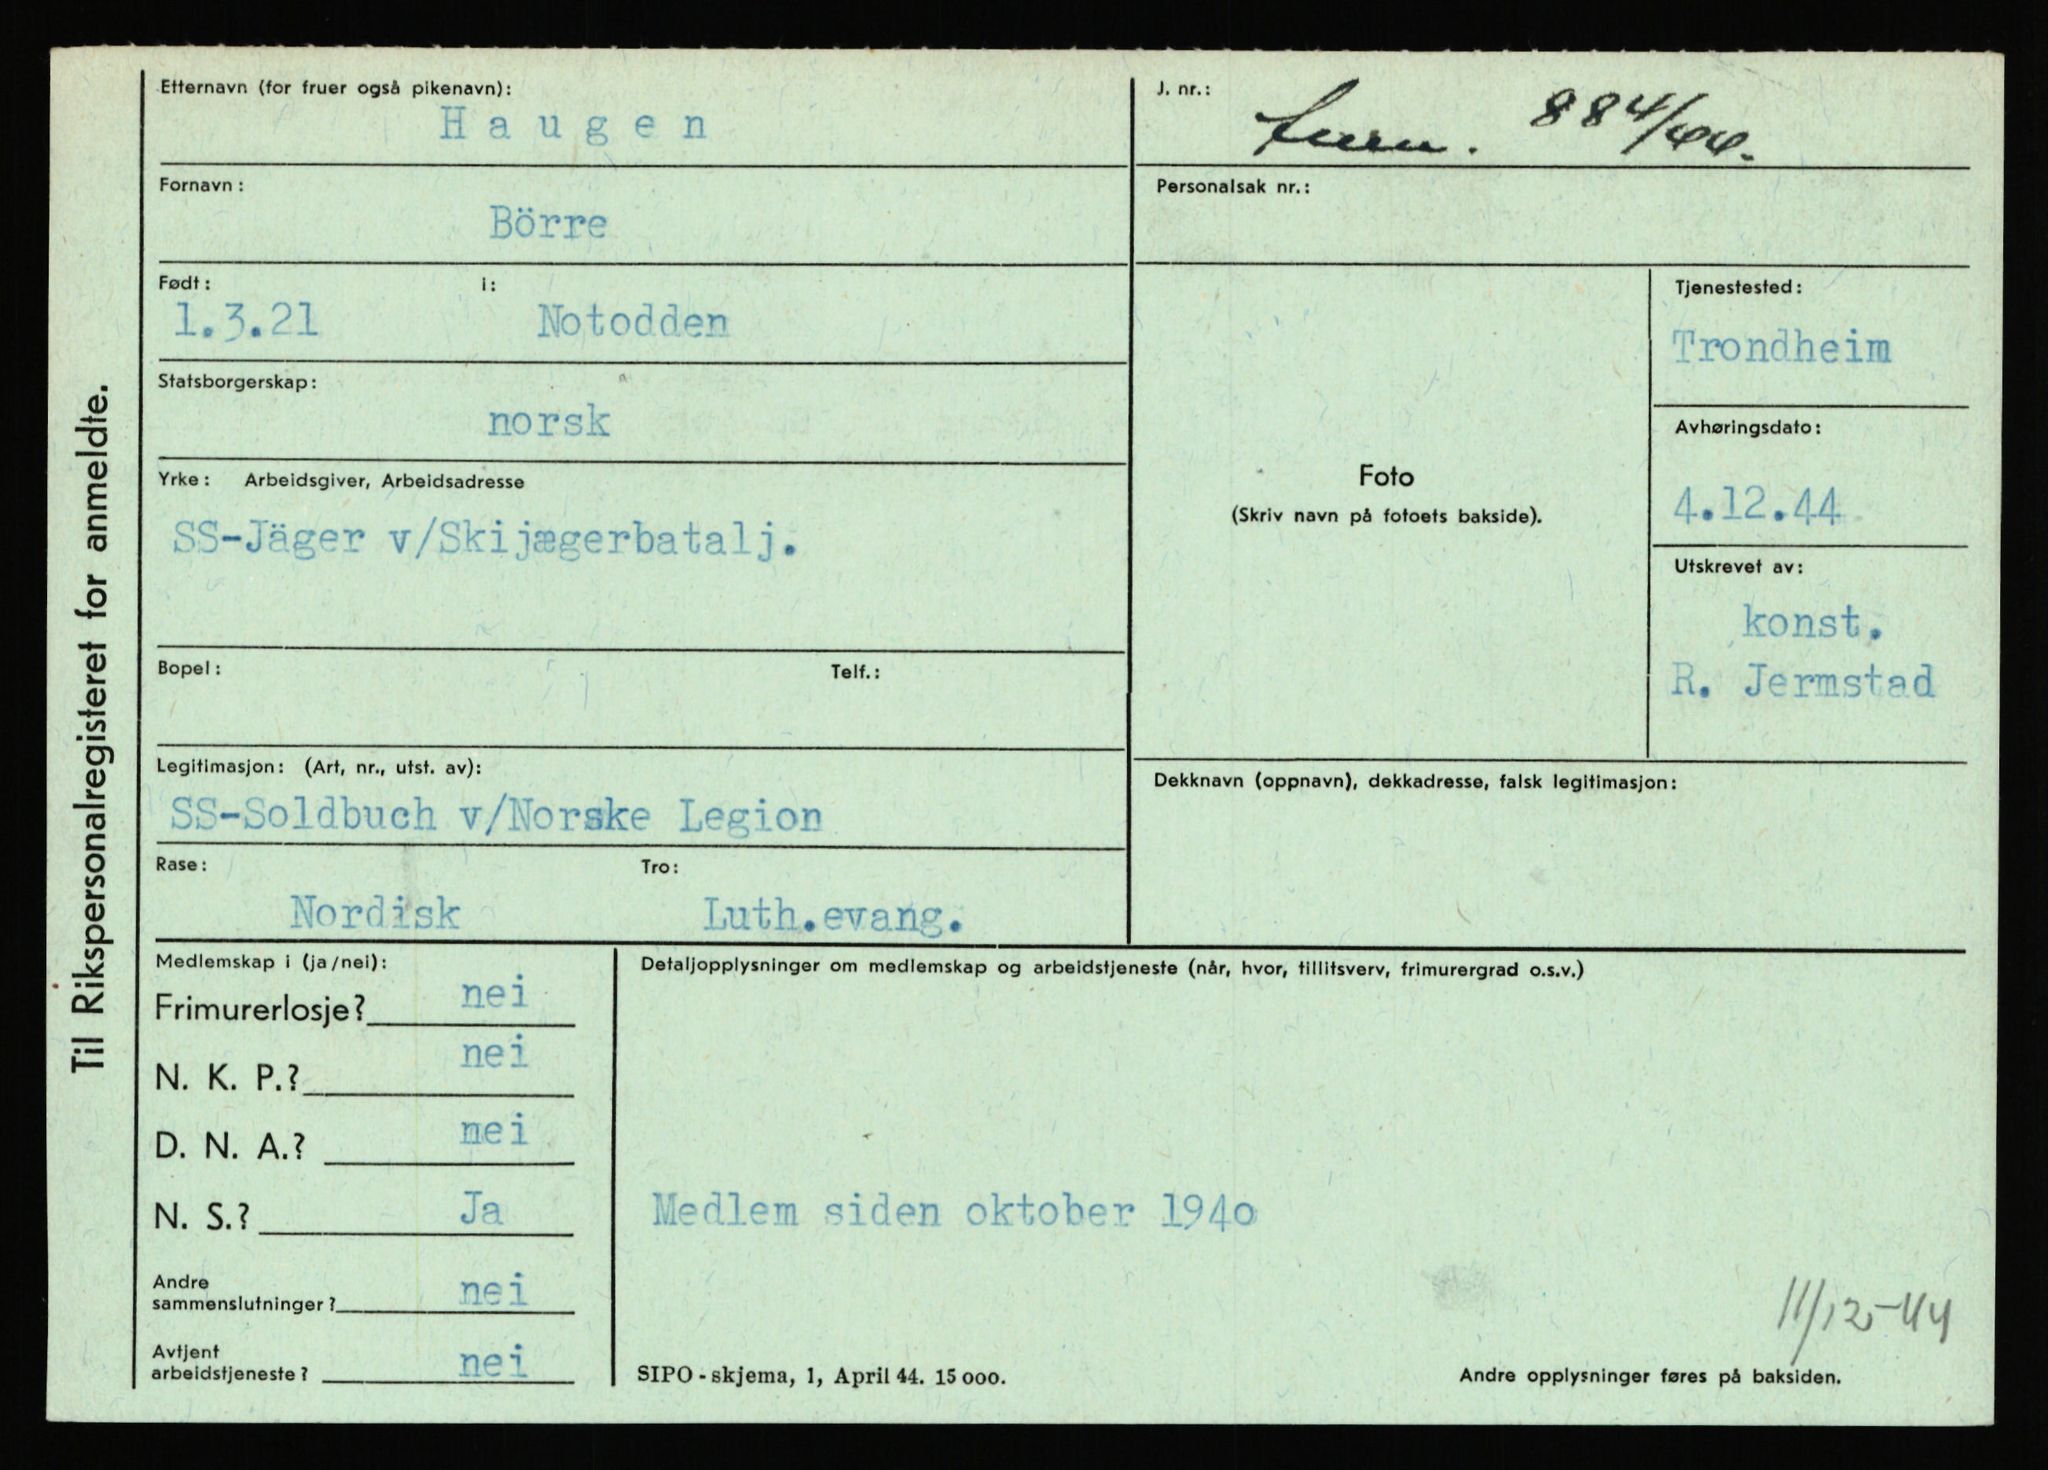 Til Rikspersonalregisteret for anmeldte.
Etternavn (for fruer også pikenavn):
Haugen
J. nr.:
884/44.
Fornavn:
Börre
Personalsak nr.:
Født: i:
1.3.21 Notodden
Tjenestested:
Trondheim
Statsborgerskap:
norsk
Avhøringsdato:
4.12.44
Yrke: Arbeidsgiver, Arbeidsadresse
SS-Jäger v/Skijægerbatalj.
Foto
(Skriv navn på fotoets bakside).
Utskrevet av:
konst.
R. Jermstad
Bopel: Telf.:
Legitimasjon: (Art, nr., utst. av):
SS-Soldbuch v/Norske Legion
Dekknavn (oppnavn), dekkadresse, falsk legitimasjon:
Rase: Tro:
Nordisk Luth.evang.
Medlemskap i (ja/nei):
Detaljopplysninger om medlemskap og arbeidstjeneste (når, hvor, tillitsverv, frimurergrad o.s.v.)
Frimurerlosje? nei
N. K. P.? nei
D. N. A.? nei
N. S.? Ja
Medlem siden oktober 1940
Andre
sammenslutninger? nei
Avtjent
arbeidstjeneste? nei
11/12-44
SIPO-skjema, 1, April 44. 15 000.
Andre opplysninger føres på baksiden.